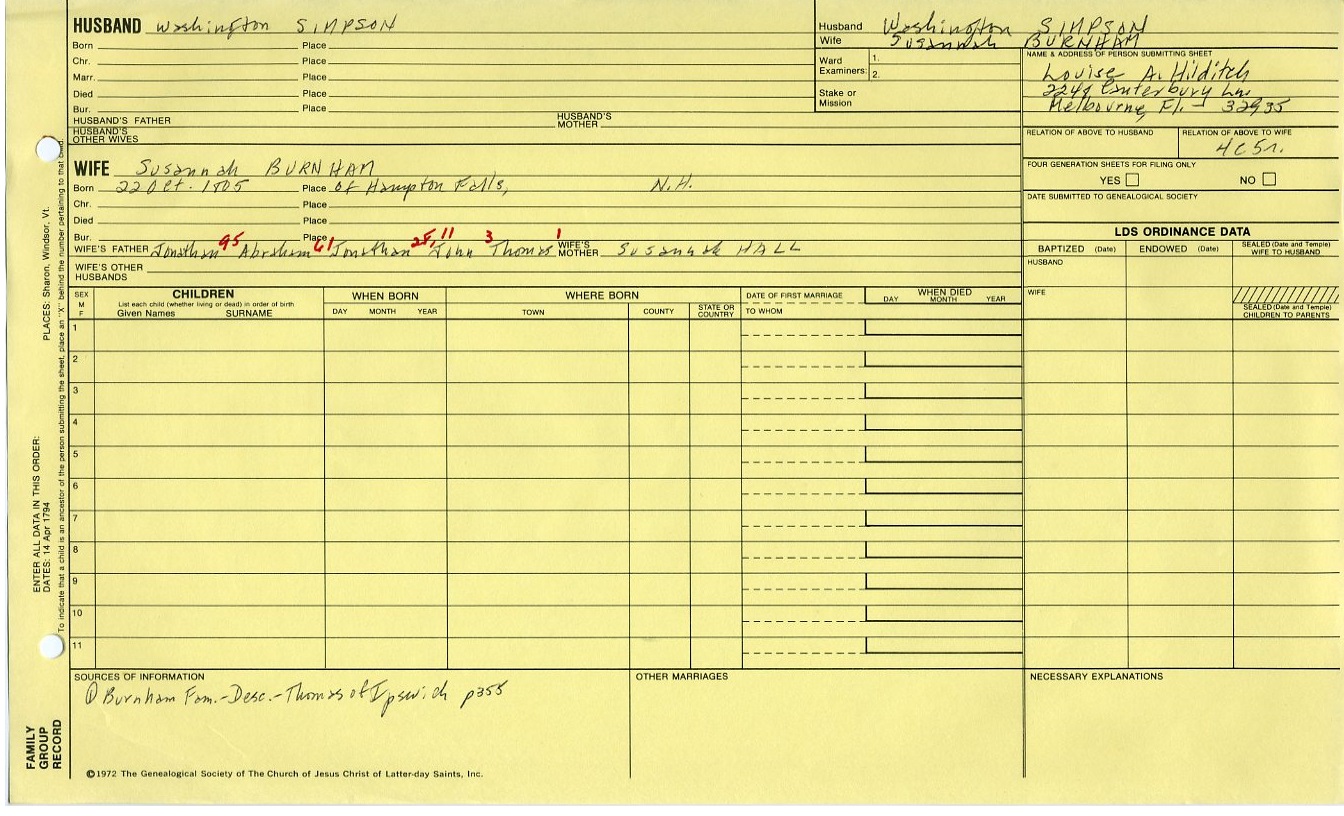 HUSBAND Washington SIMPSON
Born Place
Chr. Place
Marr. Place
Died Place
Bur. Place
HUSBAND'S FATHER HUSBAND'S MOTHER
HUSBAND'S OTHER WIVES
Husband Washington SIMPSON
Wife Susannah BURNHAM
Ward Examiners: 1. 2.
Stake or Mission
NAME & ADDRESS OF PERSON SUBMITTING SHEET
Louise A. Hilditch
2248 Canterbury Ln.
Melbourne, Fl. - 32935
RELATION OF ABOVE TO HUSBAND RELATION OF ABOVE TO WIFE
4C5r.
FOUR GENERATION SHEETS FOR FILING ONLY
YES NO
DATE SUBMITTED TO GENEALOGICAL SOCIETY
WIFE Susannah BURNHAM
Born 22 Oct. 1805 Place of Hampton Falls, N.H.
Chr. Place
Died Place
Bur. Place
WIFE'S FATHER Jonathan 95 Abraham 61 Jonathan 25, 11 John 3 Thomas 1 WIFE'S MOTHER Susannah HALL
WIFE'S OTHER HUSBANDS
LDS ORDINANCE DATA
BAPTIZED (Date) ENDOWED (Date) SEALED (Date and Temple) WIFE TO HUSBAND
HUSBAND
WIFE
SEALED (Date and Temple) CHILDREN TO PARENTS
SEX M F
CHILDREN
List each child (whether living or dead) in order of birth
Given Names SURNAME
WHEN BORN
DAY MONTH YEAR
WHERE BORN
TOWN COUNTY STATE OR COUNTRY
DATE OF FIRST MARRIAGE
TO WHOM
WHEN DIED
DAY MONTH YEAR
1
2
3
4
5
6
7
8
9
10
11
SOURCES OF INFORMATION
① Burnham Fam.-Desc.-Thomas of Ipswich p355
OTHER MARRIAGES
NECESSARY EXPLANATIONS
©1972 The Genealogical Society of The Church of Jesus Christ of Latter-day Saints, Inc.
FAMILY GROUP RECORD
ENTER ALL DATA IN THIS ORDER:
DATES: 14 Apr 1794
PLACES: Sharon, Windsor, Vt.
To indicate that a child is an ancestor of the person submitting the sheet, place an "X" behind the number pertaining to that child.